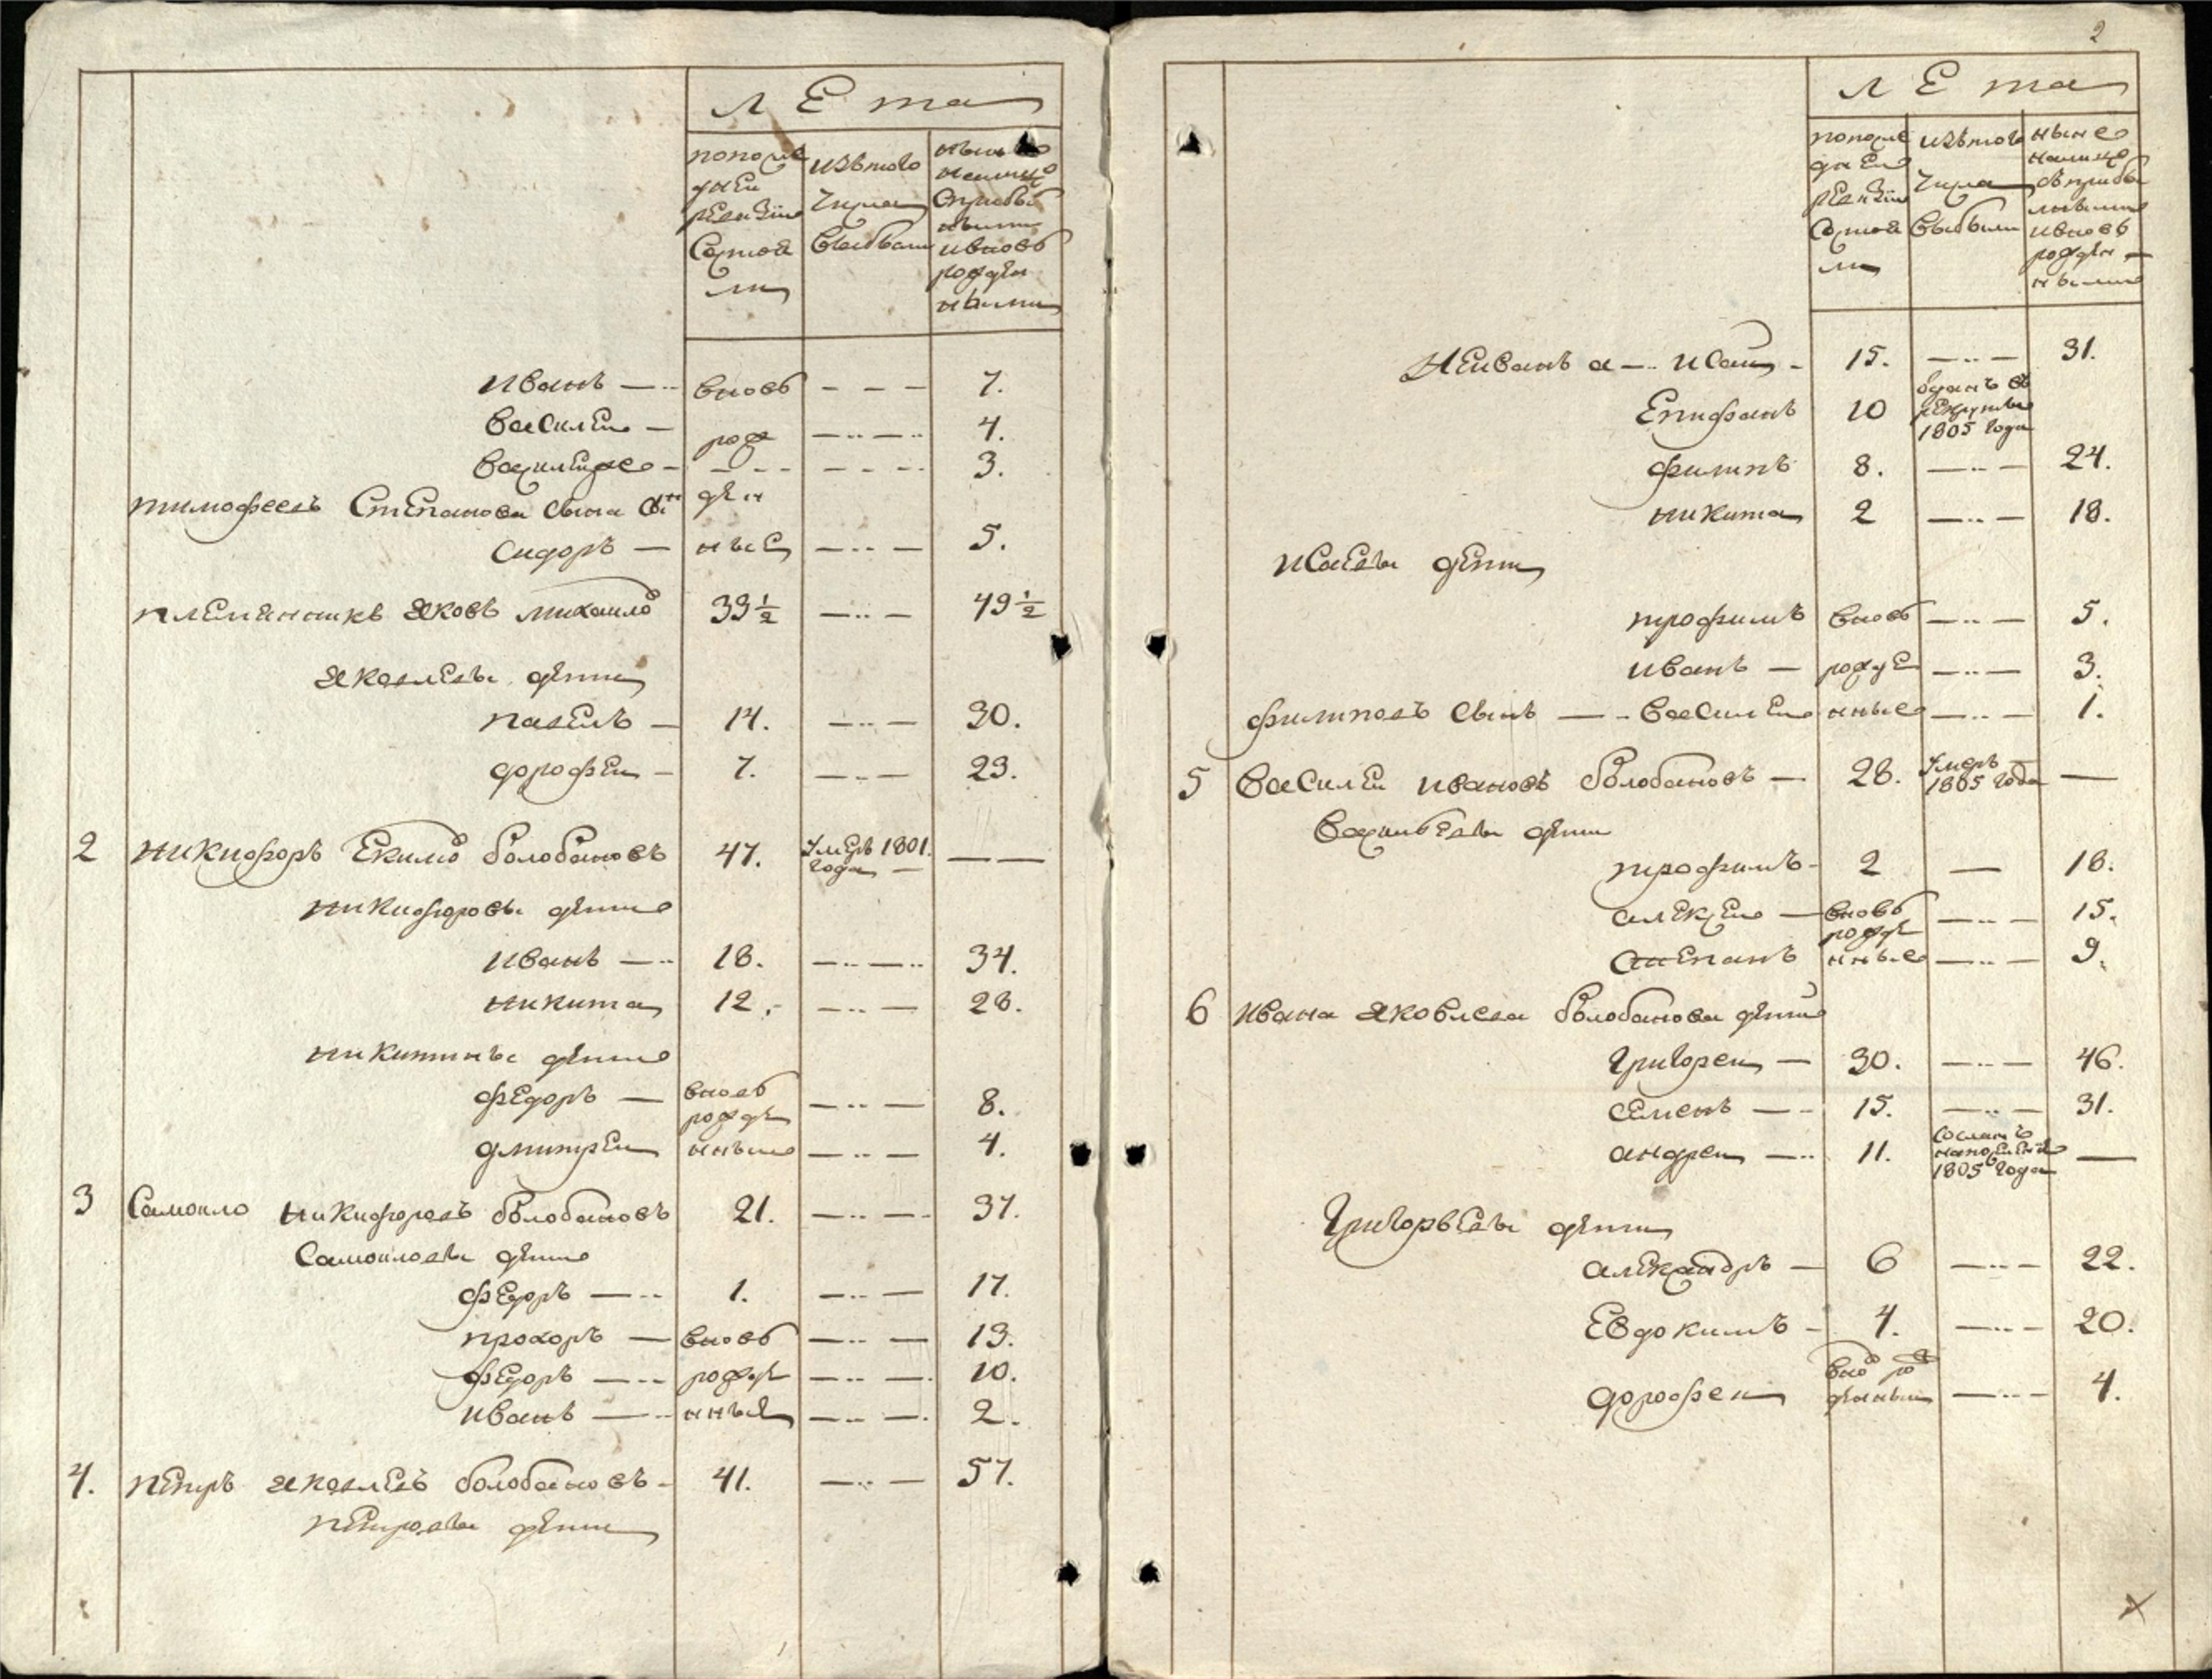 Лета
по последней ревизии состояли
изъ того числа выбыли
ныне налицо с прибылыми и вновь рожденными
Иванъ — вновь — 7.
Василеи — рож — 4.
Василей же — 3.
Тимофеевъ Степанова сына сынъ ден
Сидоръ — ные — 5.
племянникъ Яковъ Михаило 33½ — 49½
Яковлевы дети
Павелъ — 14. — 30.
Дорофеи — 7. — 23.
2 Никифоръ Екимо Болобановъ 47. умеръ 1801. года — —
Никифоровы дети
Иванъ — 18. — 34.
Никита 12. — 28.
Никитины дети
Федоръ — вновь рожде — 8.
Дмитреи нные — 4.
3 Самоило Никифоровъ Болобановъ 21. — 37.
Самоиловы дети
Федоръ — 1. — 17.
Прохоръ — вновь — 13.
Федоръ — рожде — 10.
Иванъ — нные — 2.
4. Петръ Яковлевъ Болобановъ - 41. — 57.
Петровы дети
2
Лета
по последней ревизии состояли
изъ того числа выбыли
ныне налицо с прибылыми и вновь рожденными
Исаи - 15. — 31.
Епифанъ 10 отданъ въ рекруты 1805 года
Филипъ 8. — 24.
Никита 2 — 18.
Исаевы дети
Трофимъ вновь — 5.
Иванъ — рожде — 3.
Филиповъ сынъ — Василеи нные — 1.
5 Василеи Ивановъ Болобановъ — 28. умеръ 1805 года —
Васильевы дети
Трофимъ - 2 — 18.
Алексеи — вновь рожде — 15.
Степанъ нные — 9.
6 Ивана Яковлева Болобанова дети
Григореи — 30. — 46.
Семенъ — 15. — 31.
Андреи — 11. сосланъ на поселение 1805 года —
Григорьевы дети
Александръ — 6 — 22.
Евдокимъ - 4. — 20.
Дорофеи внов рожденныи — 4.